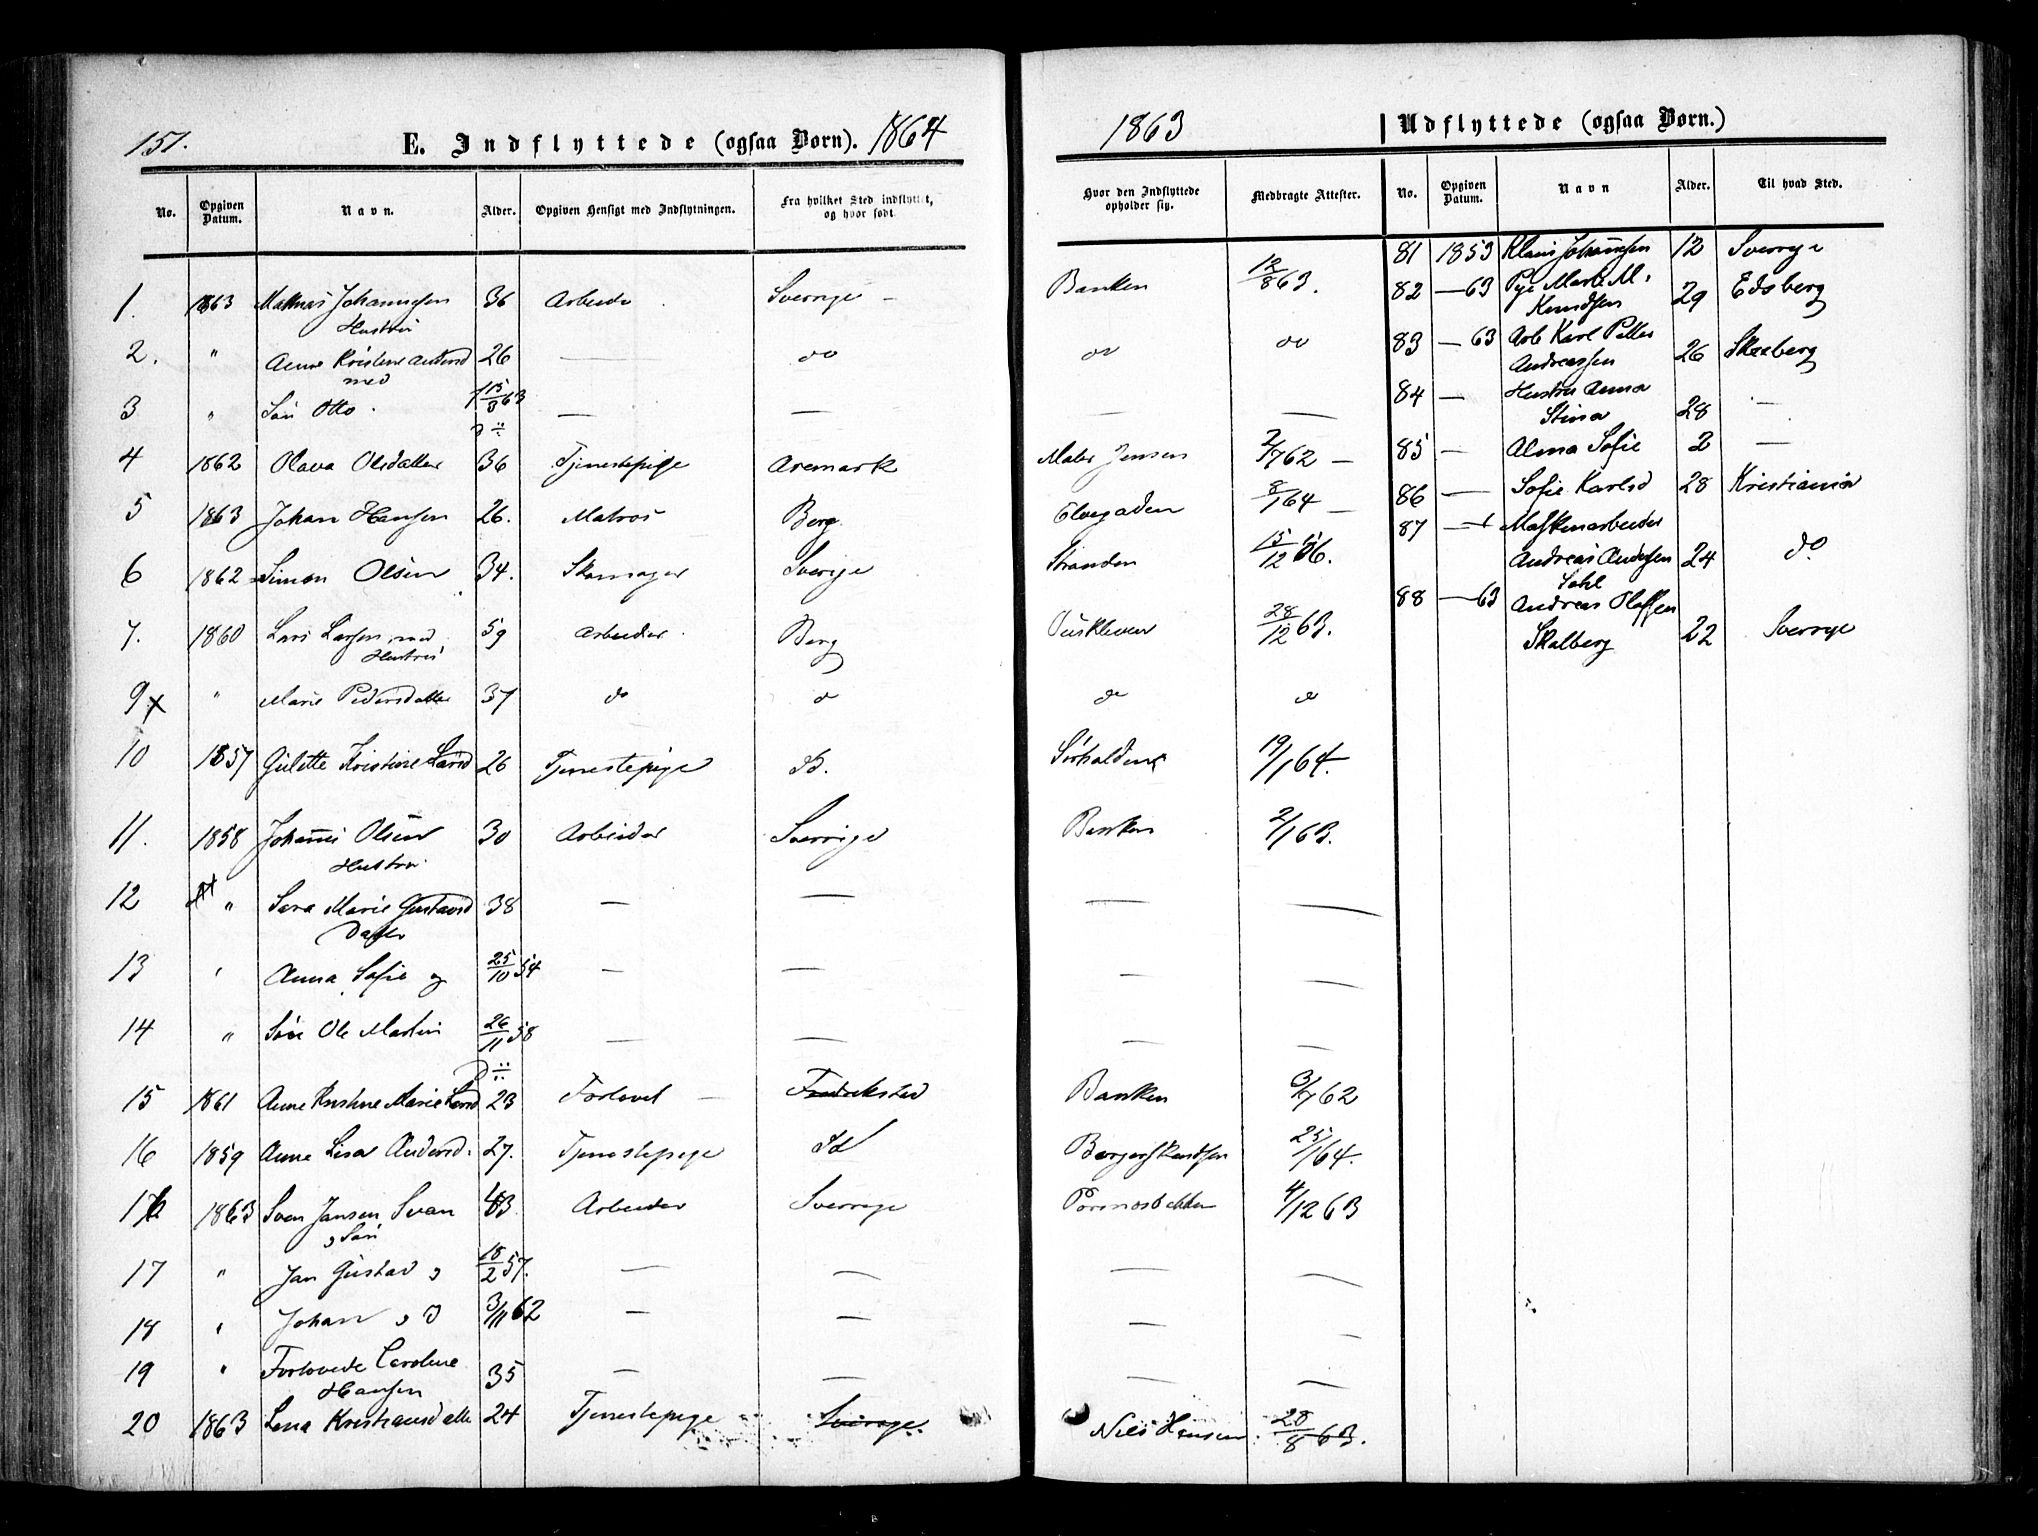 151.
E. Indflyttede (ogsaa Børn). 1864
No. Opgiven Datum. Navn. Alder. Opgiven Hensigt med Indflytningen. Fra hvilket Sted indflyttet, og hvor født.
1. 1863 Johannesen 36 Arbeide Sverrige —
Hustru
2. " Anne Kristine Andersd 26 — do
med
3 " Søn Otto. 15/3 63 — —
4 1862 Olava Olsdatter 36 Tjenestepige Aremark
5 1863 Johan Hansen 26. Matros Berg
6 1862 Simon Olsen 34. Skomager Sverige
7. 1860 Lars Larsen med 59 Arbeider Berg
Hustru
9 x " Marie Pedersdatter 37 do do
10 1857 Gulette Kristine Larsd 26 Tjenestepige
11. 1858 Johannes Olsen 30 Arbeider Sverrige
Hustru
12 " Sara Marie Gustavsd 38 — —
Datter
13 " Anna Sofie og 25/10 54 — —
14 " Søn Ole Martin 26/11 58 — —
15 1861 Anne Kristine Marie Larsd 23 Forlovet — Fredrikstad
16 1859 Anne Lisa Andersd. 27. Tjenestepige Id
1863 Sven Jansen Svan 43 Arbeider Sverrige
Søn
17 " Jan Gustav 18/2 57. — —
18 " Johan 3/11 62 — —
19 " Forlovede Caroline — —
Hansen 35
20 1863 Lena Kristiansdatter 24 Tjenestepige Sverrige.
1863
Hvor den Indflyttede opholder sig. Medbragte Attester.
Banken 12/8 63.
do do
— —
Maler Jensen 2/7 62 —
Elvegaden 8/1 64 —
Stranden
28/12 63.
do do
Sørhalden 19/1 64.
Banken 2/1 63.
— —
— —
— —
Banken 3/7 62
25/1 64.
4/12 63
— —
— —
— —
Niels Hansen 28/8 63.
Udflyttede (ogsaa Børn.)
No. Opgiven Datum. Navn Alder. Til hvad Sted.
81 1853 Klaus Johannesen 12 Sverrige
82 — 63 Pige Marte M.
Knudsen 29 Edsberg
83 — 63 Arb Karl Petter
Andreassen 26 Skeberg
84 — Hustru Anna
Stina 28 —
85 — Alma Sofie 2 —
86 — Sofie Karlsd 28 Kristiania
87 — Maskinarbeider
Andreas Andersen 24 do
88 — 63 Andreas Olassen
Skalberg 22 Sverrige